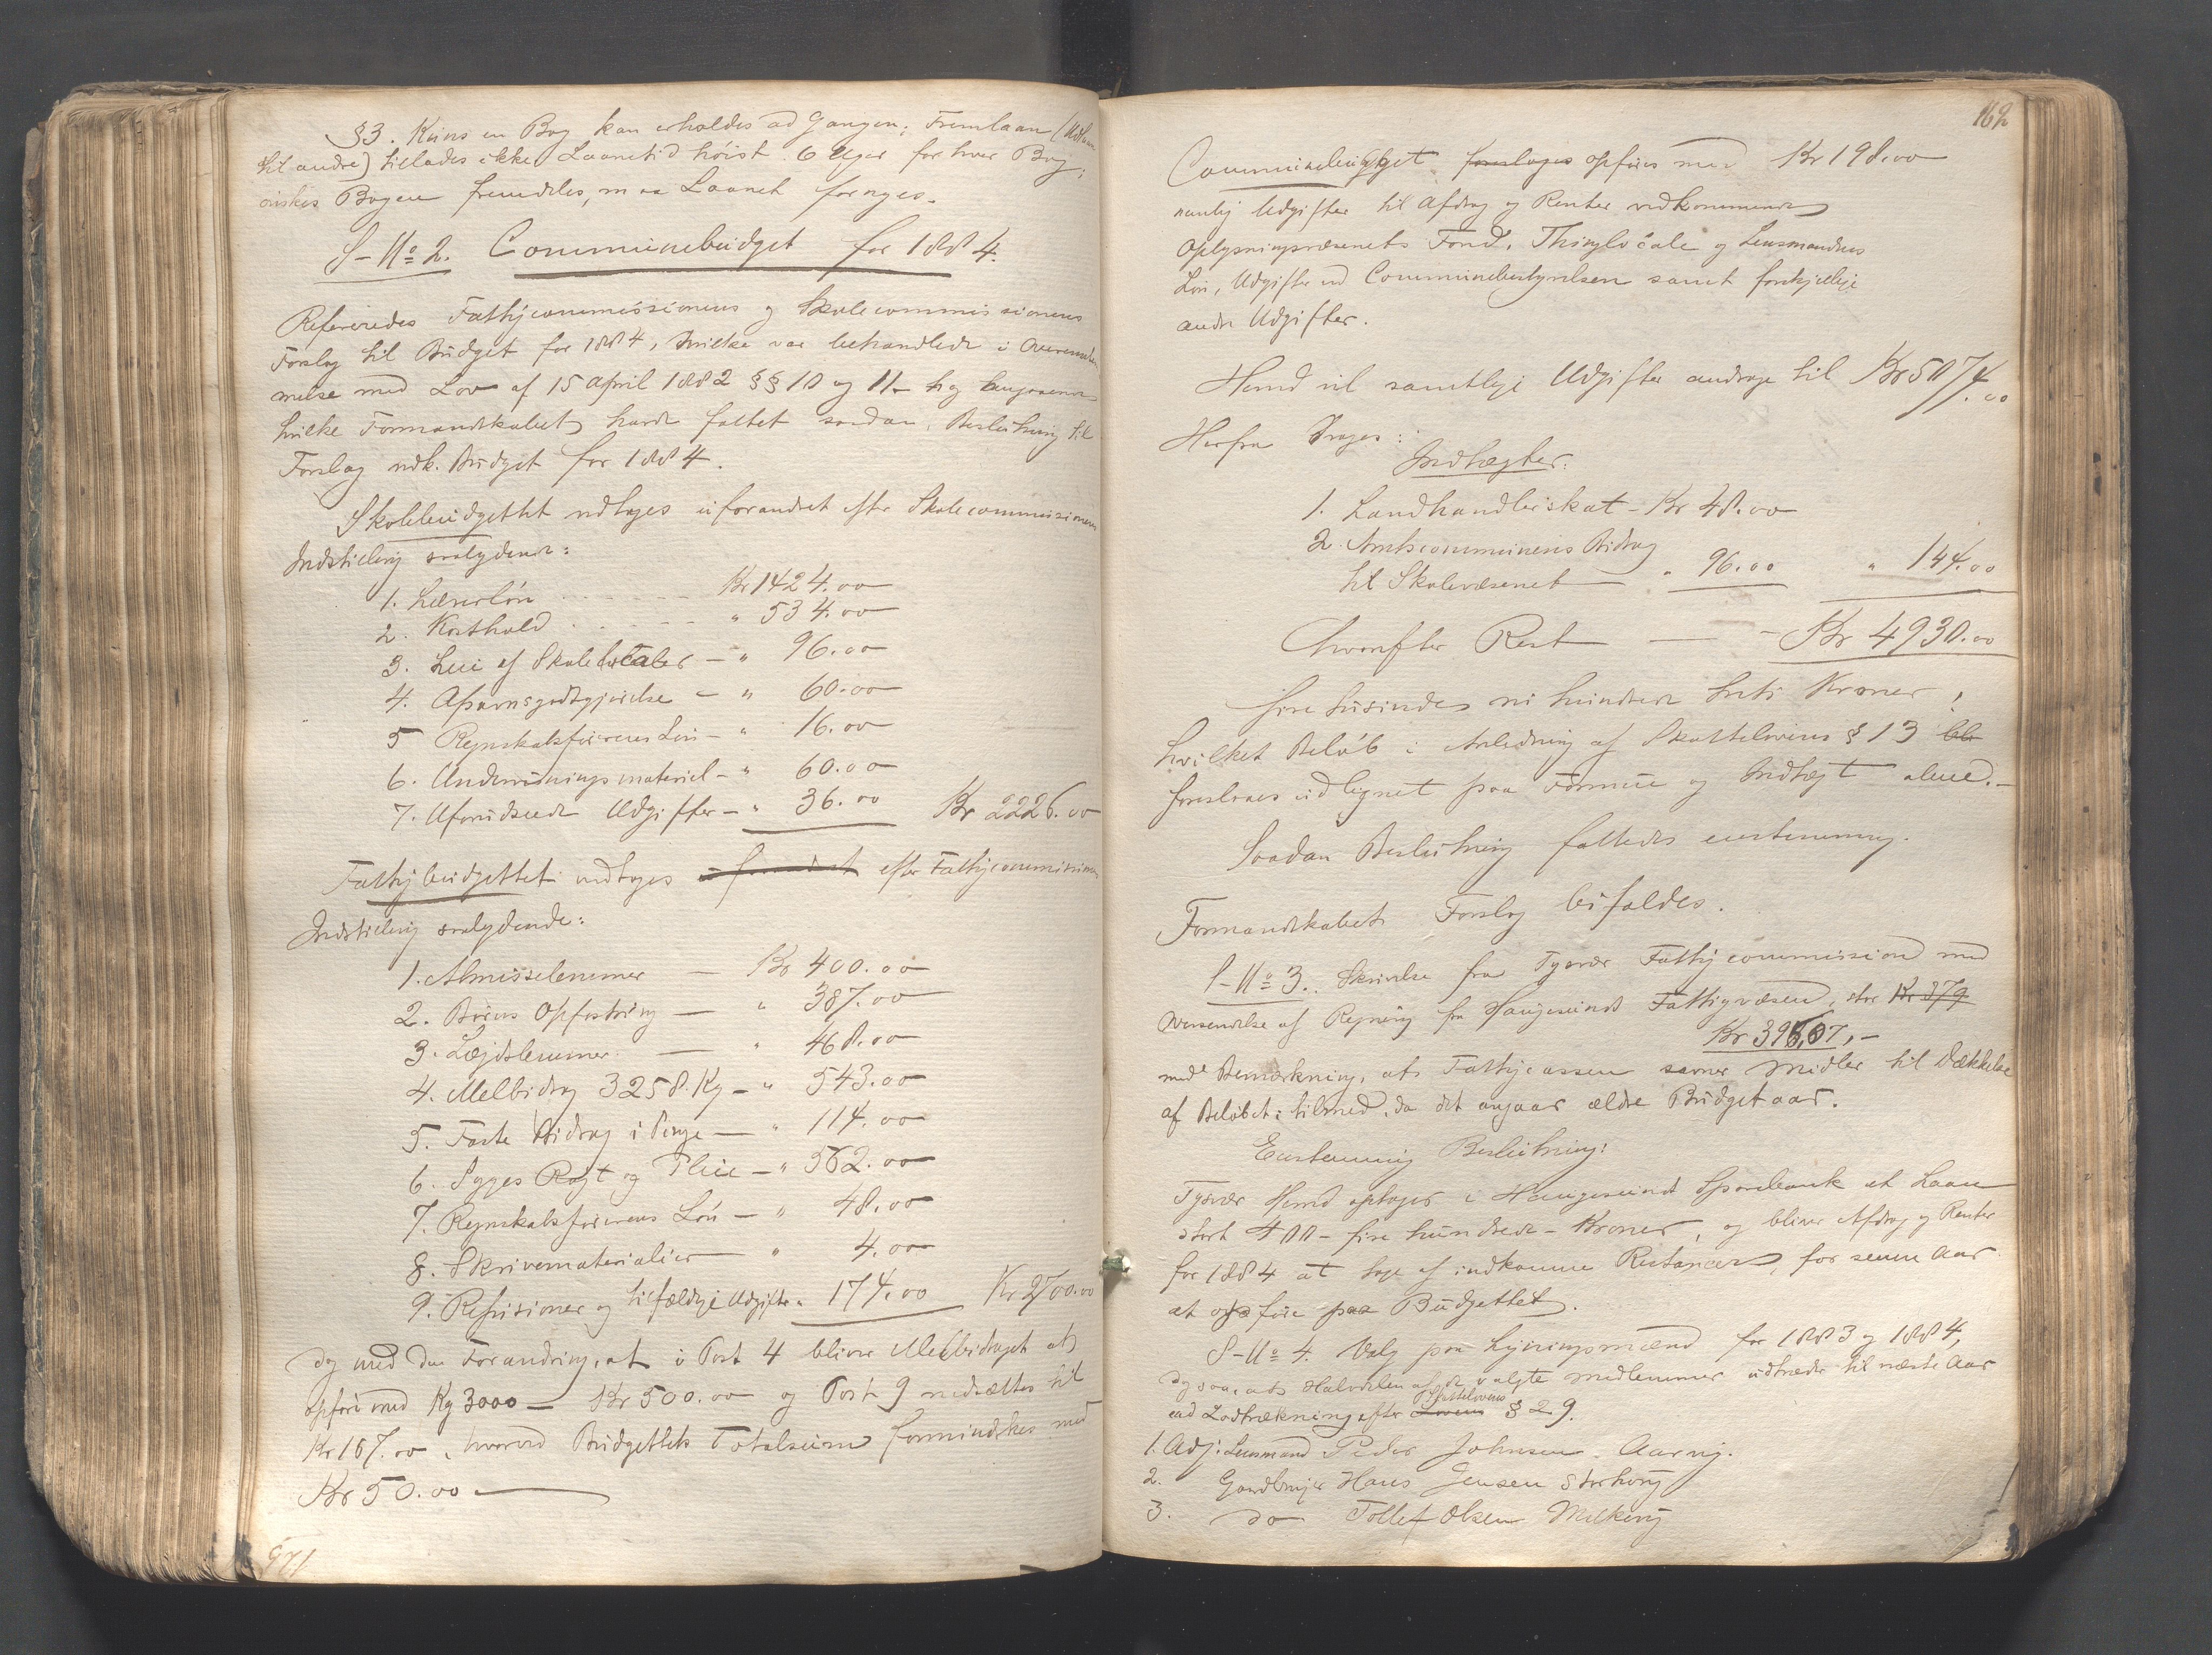 §3. Kuns en Bog kan erholdes ad Gangen; Fremlaan (Udlaan
til andre) tillades ikke, Laanetid høist 6 Uger for hver Bog;
ønskes Bogen fremdeles, maa Laanet fornyes.
S-No 2. Communebudget for 1884.
Refereredes Fattigcommissionens og Skolecommissionens
Forslag til Budget for 1884, hvilke var behandlede i Overensstem-
melse med Lov af 15 April 1882 §§ 10 og 11
hvilke Formandskabet havde fattet saadan Beslutning til
Forslag vdk. Budget for 1884.
Skolebudgettet vedtages uforandret efter Skolecommissionens
Indstilling saalydende:
1. Lærerløn - - - - Kr 1424.00
2. Kosthold - - - - " 534.00
3. Leie af Skolelocaler - " 96.00
4. Afsavnsgodtgjørelse - " 60.00
5 Regnskabsførerens Løn - " 16.00
6. Undervisningsmateriel - " 60.00
7. Uforudseede Udgifter - " 36.00 Kr 2226.00
Fattigbudgettet vedtages uforandret efter Fattigcommissionens
Indstilling saalydende:
1. Almisselemmer — Kr 400.00
2. Børns Opfostring — " 387.00
3. Lægdslemmer — " 468.00
4. Melbidrag 3258 Kg - " 543.00
5. Faste Bidrag i Penge — " 114.00
6. Syges Røgt og Pleie - " 562.00
7. Regnskabsførerens Løn - " 48.00
8. Skrivematerialier " 4.00
9. Refusioner og tilfældige Udgifter " 174.00 Kr 2700.00
dog med den Forandring, at i Post 4 bliver Melbidraget at
opføre med Kg 3000 — Kr 500.00 og Post 9 nedsættes til
Kr 167.00, hvorved Budgettets Totalsum formindskes med
Kr 50.00
162
Communebudgget foreslages opføres med Kr 198.00
nemlig Udgifter til Afdrag og Renter vedkommende
Oplysningsvæsenets Fond, Thinglocale og Lensmandens
Løn, Udgifter ved Communebestyrelsen samt forskjellige
andre Udgifter.
Herred vil samtlige Udgifter andrage til Kr 5074.00
Herfra drages:
Indtægter:
1. Landhandlerskat - Kr 48.00
2. Amtscommunens Bidrag
til Skolevæsenet — " 96.00 " 144.00
hvorefter Rest — - Kr 4930.00
fire tusinde ni hundrede treti Kroner,
hvilket Beløb i Anledning af Skattelovens § 13 ble
foreslaaes udlignet paa Formue og Indtægt alene.-
Saadan Beslutning fattedes eenstemmig.
Formandskabets Forslag bifaldes.
S-No 3. Skrivelse fra Tysvær Fattigcommission med
Oversendelse af Regning fra Haugesunds Fattigvæsen, stor Kr 379
Kr 396,07,-
med Bemærkning, at Fattigcassen savner Midler til Dækkelse
af Beløbet; tilmed, da det angaar ældre Budgetaar.
Eenstemmig Beslutning:
Tysvær Herred optager i Haugesunds Sparebank et Laan
stort 400 - fire hundrede - Kroner, og bliver Afdrag og Renter
for 1884 at tage af indkomne Restancer, for senere Aar
at opføre paa Budgettet.
S-No 4. Valg paa Ligningsmænd for 1883 og 1884,
dog saa, at Halvdelen af de valgte Medlemmer udtræder til næste Aar
ved Lodtrækning efter Lovens Skattelovens § 29.
1. Adj: Lensmand Peder Johnsen Aarvig.
2. Gaardbruger Hans Jensen Storhoug
3. do Tollef Olsen Melkevig